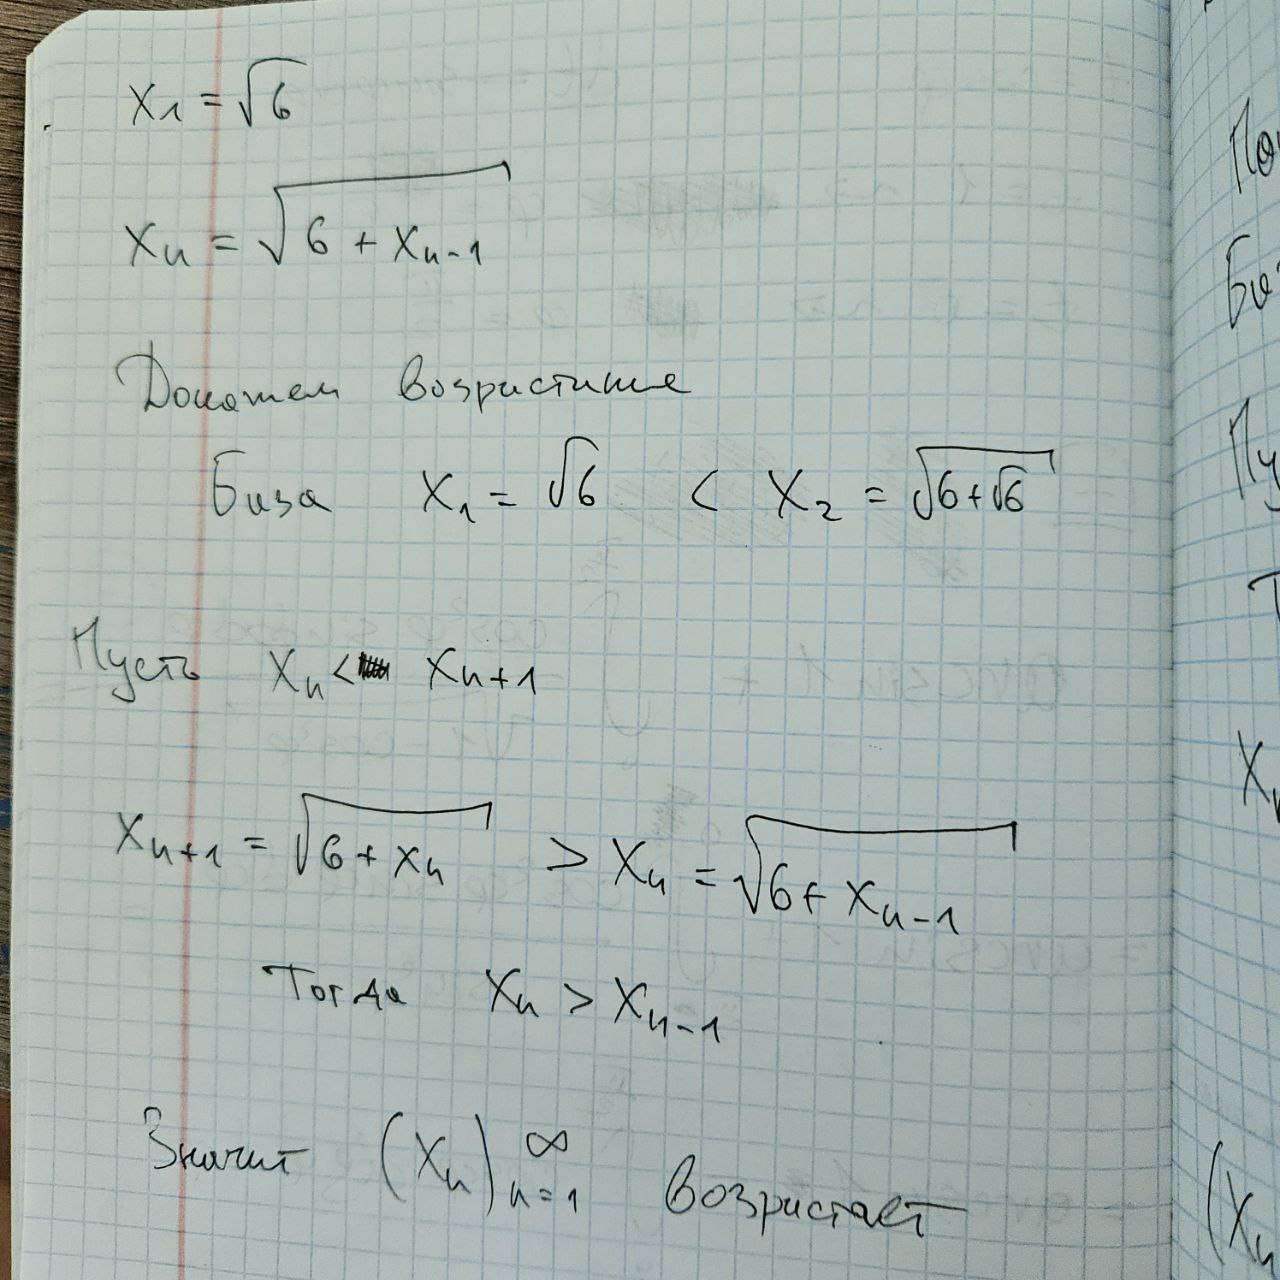 x₁ = √6
xₙ = √(6 + xₙ₋₁)
Докажем возрастание
База x₁ = √6 < x₂ = √(6+√6)
Пусть xₙ < xₙ₊₁
xₙ₊₁ = √(6 + xₙ) > xₙ = √(6 + xₙ₋₁)
Тогда xₙ > xₙ₋₁
Значит (xₙ)ₙ₌₁^∞ возрастает